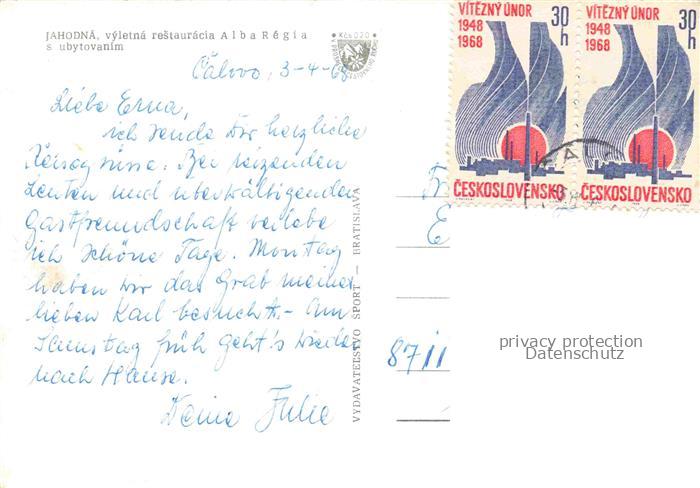 JAHODNÁ, výletná reštaurácia Alba Régia
s ubytovaním
Kčs 0,20
Čalovo, 3-4-68
Liebe Erna,
ich sende Dir herzliche
Bei reizenden
Leuten und überwältigender
Gastfreundschaft verlebe
ich schöne Tage. Montag
haben wir das Grab meines
lieben Karl besucht.- Am
Samstag früh geht's wieder
nach Hause.
Deine Julie
VYDAVATEĽSTVO ŠPORT — BRATISLAVA
VÍTĚZNÝ ÚNOR
1948
1968
30
h
ČESKOSLOVENSKO
VÍTĚZNÝ ÚNOR
1948
1968
30
h
ČESKOSLOVENSKO
E
8711
privacy protection
Datenschutz